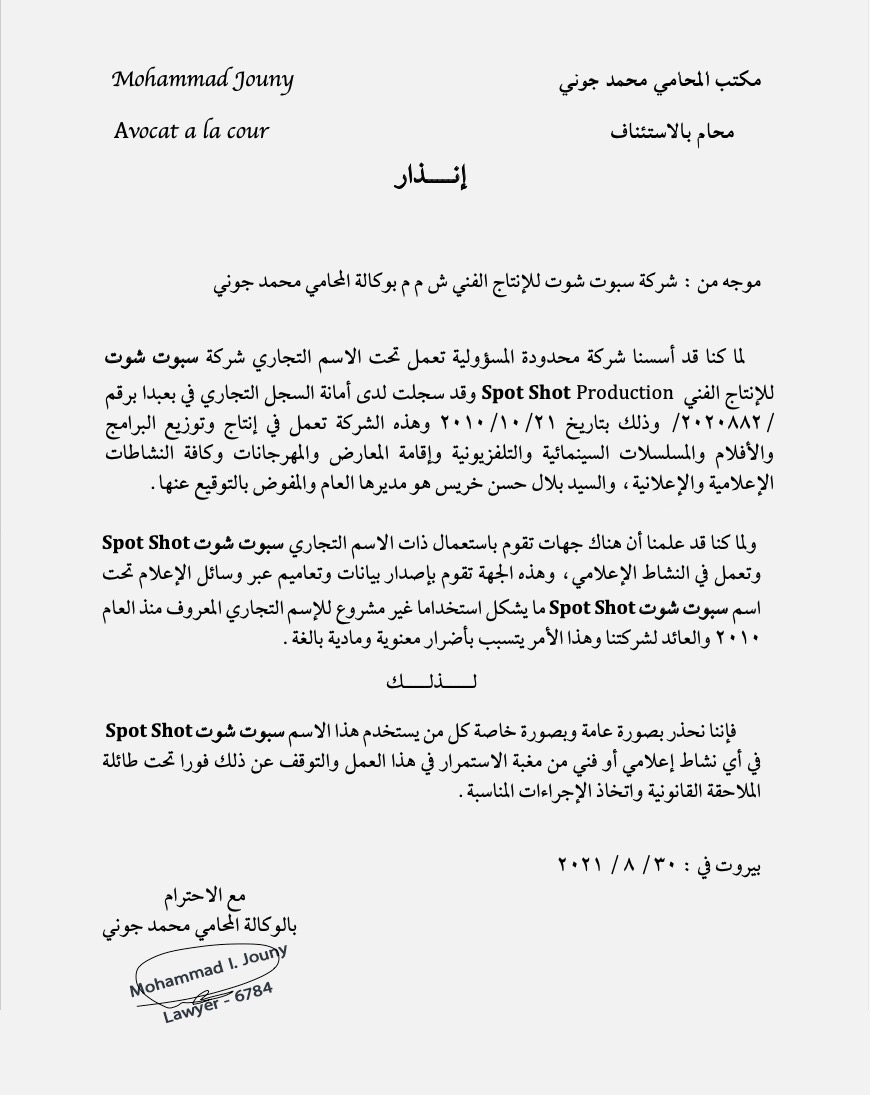 مكتب المحامي محمد جوني
Mohammad Jouny
محام بالاستئناف
Avocat a la cour
إنـــذار
موجه من : شركة سبوت شوت للإنتاج الفني ش م م بوكالة المحامي محمد جوني
لما كنا قد أسسنا شركة محدودة المسؤولية تعمل تحت الاسم التجاري شركة سبوت شوت
للإنتاج الفني Spot Shot Production وقد سجلت لدى أمانة السجل التجاري في بعبدا برقم
/٢٠٢٠٨٨٢/ وذلك بتاريخ ٢٠١٠/١٠/٢١ وهذه الشركة تعمل في إنتاج وتوزيع البرامج
والأفلام والمسلسلات السينمائية والتلفزيونية وإقامة المعارض والمهرجانات وكافة النشاطات
الإعلامية والإعلانية ، والسيد بلال حسن خريس هو مديرها العام والمفوض بالتوقيع عنها .
ولما كنا قد علمنا أن هناك جهات تقوم باستعمال ذات الاسم التجاري سبوت شوت Spot Shot
وتعمل في النشاط الإعلامي ، وهذه الجهة تقوم بإصدار بيانات وتعاميم عبر وسائل الإعلام تحت
اسم سبوت شوت Spot Shot ما يشكل استخداما غير مشروع للإسم التجاري المعروف منذ العام
٢٠١٠ والعائد لشركتنا وهذا الأمر يتسبب بأضرار معنوية ومادية بالغة .
لـــذلـــك
فإننا نحذر بصورة عامة وبصورة خاصة كل من يستخدم هذا الاسم سبوت شوت Spot Shot
في أي نشاط إعلامي أو فني من مغبة الاستمرار في هذا العمل والتوقف عن ذلك فورا تحت طائلة
الملاحقة القانونية واتخاذ الإجراءات المناسبة .
بيروت في : ٣٠/ ٨ / ٢٠٢١
مع الاحترام
بالوكالة المحامي محمد جوني
Mohammad I. Jouny
Lawyer - 6784